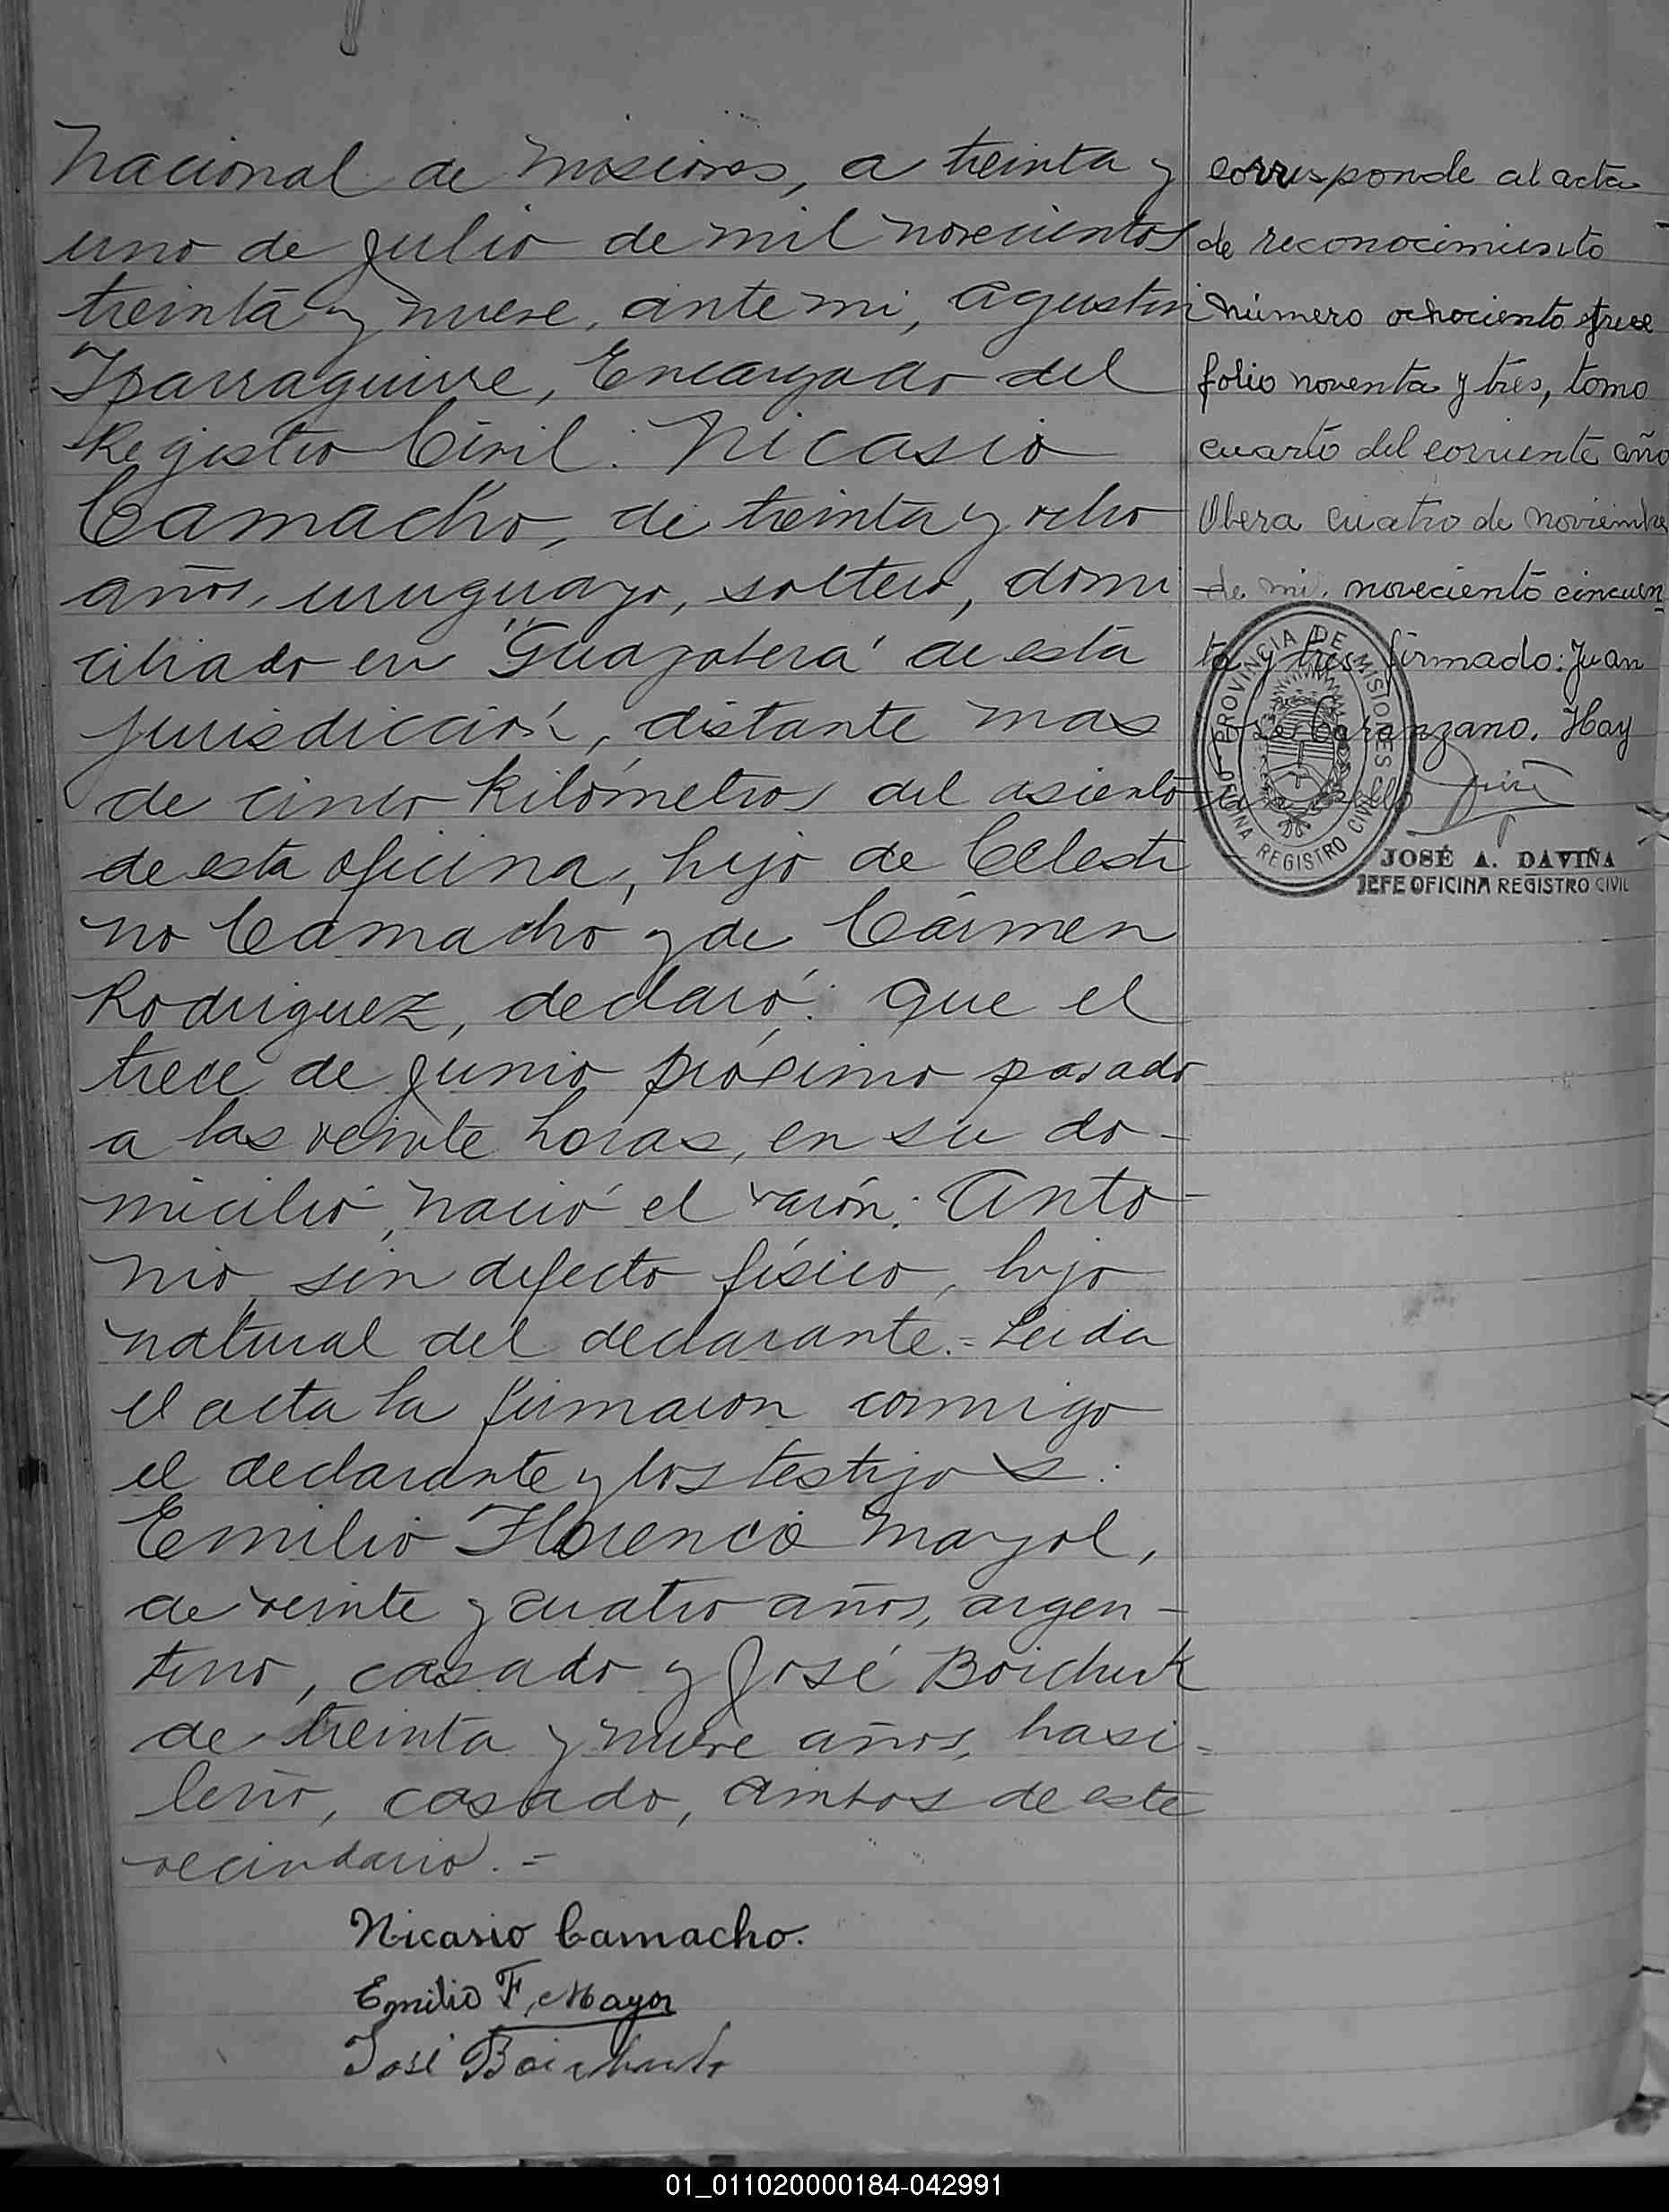 Nacional de Misiones, a treinta y
uno de Julio de mil novecientos
treinta y nueve, ante mi, Agustin
Yparraguirre, Encargado del
Registro Civil: Nicasio
Camacho, de treinta y ocho
años, uruguayo, soltero, domi
ciliado en "Guayabera" de esta
jurisdicción, distante mas
de cinco kilómetros del asiento
de esta oficina, hijo de Celesti
no Camacho y de Cármen
Rodriguez, declaró: Que el
trece de Junio próximo pasado
a las veinte horas, en su do-
micilio, nació el varón: Anto-
nio, sin defecto físico, hijo
natural del declarante.= Leida
el acta la firmaron conmigo
el declarante y los testigos:
Emilio Florencio Mayol,
de veinte y cuatro años, argen-
tino, casado y José Boichuk
de treinta y nueve años, basi-
leño, casado, ambos de este
vecindario.=
Nicasio Camacho.
Emilio F. Mayol
José Boichuk
corresponde al acta
de reconocimiento
número ochociento trece
folio noventa y tres, tomo
cuarto del corriente año
Obera cuatro de noviembre
de mil noveciento cincuen
ta y tres firmado: Juan
Caranzano. Hay
sello
PROVINCIA DE MISIONES
OFICINA REGISTRO CIVIL
JOSÉ A. DAVIÑA
JEFE OFICINA REGISTRO CIVIL
01_011020000184-042991